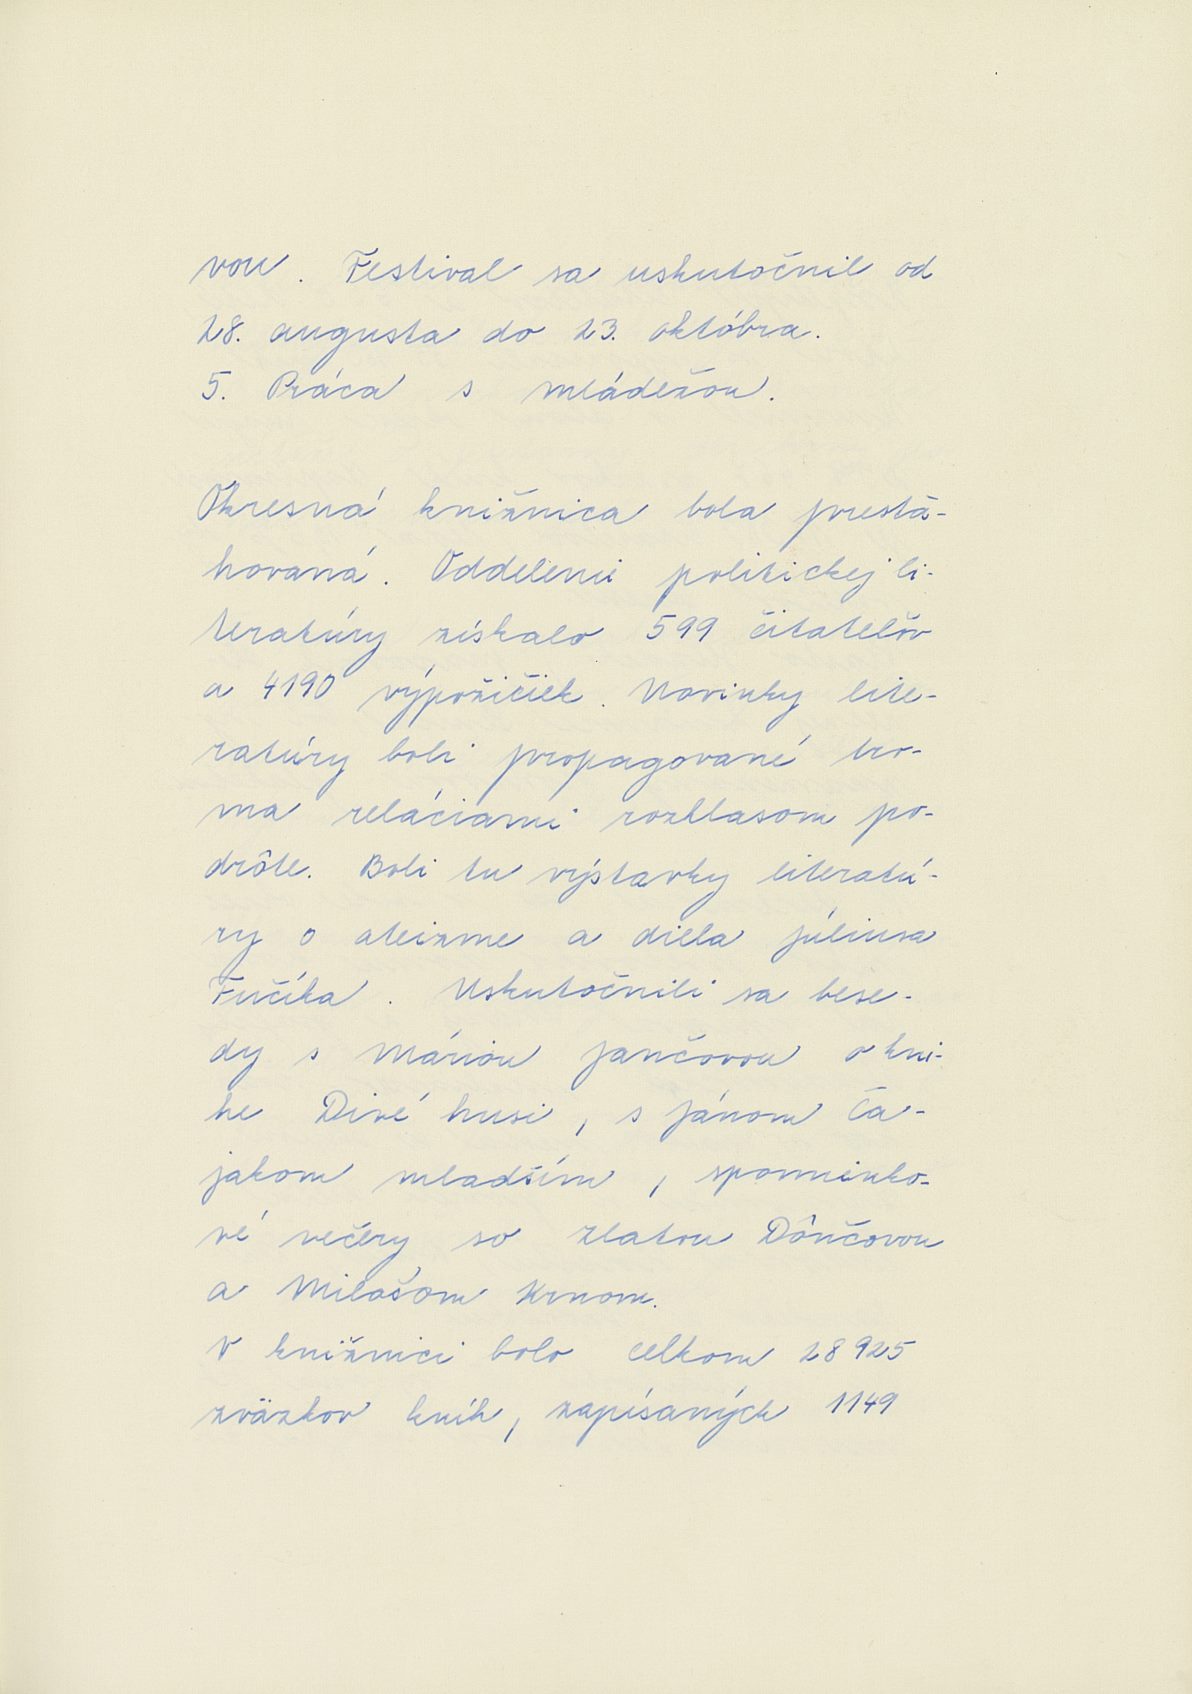 vou. Festival sa uskutočnil od
28. augusta do 23. októbra.
5. Práca s mládežou.
Okresná knižnica bola prestä-
hovaná. Oddelenie politickej li-
teratúry získalo 599 čitateľov
a 4190 výpožičiek. Novinky lite-
ratúry boli propagované tro-
ma reláciami rozhlasom po-
drôte. Boli tu výstavky literatú-
ry o ateizme a diela Júliusa
Fučíka. Uskutočnili sa bese-
dy s Máriou Jančovou o kni-
he Divé husi, s Jánom Ča-
jakom mladším, spomienko-
vé večery so Zlatou Dônčovou
a Milošom Krnom.
V knižnici bolo celkom 28 925
zväzkov kníh, zapísaných 1149